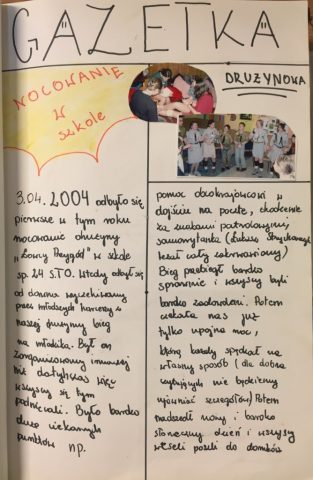 GAZETKA
DRUŻYNOWA
NOCOWANIE
W
szkole
3.04. 2004 odbyło się
pierwsze w tym roku
nocowanie drużyny
w szkole
sp. 24 S.T.O. Wtedy odbył się
od dawna wyczekiwany
przez młodszych harcerzy w
naszej drużynie bieg
na młodzika. Był on
zorganizowany inaczej
niż dotychczas więc
wszyscy się tym
podniecali. Było bardzo
dużo ciekawych
punktów np.
pomoc obcokrajowcowi w
dojściu na pocztę, chodzenie
za znakami patrolowymi,
samarytanka (Łukasz
leżał cały zabandażowany)
Bieg przebiegł bardzo
sprawnie i wszyscy byli
bardzo zadowoleni. Potem
czekała nas już
tylko upojna noc,
którą każdy spędzał na
własny sposób (dla dobra
czytających nie będziemy
ujawniać szczegółów) Potem
nadszedł nowy i bardzo
słoneczny dzień i wszyscy
weseli poszli do domków